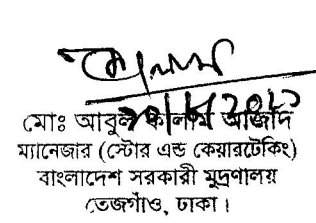 মোঃ আবুল কালাম আজাদ
ম্যানেজার (স্টোর এন্ড কেয়ারটেকিং)
বাংলাদেশ সরকারী মুদ্রণালয়
তেজগাঁও, ঢাকা।